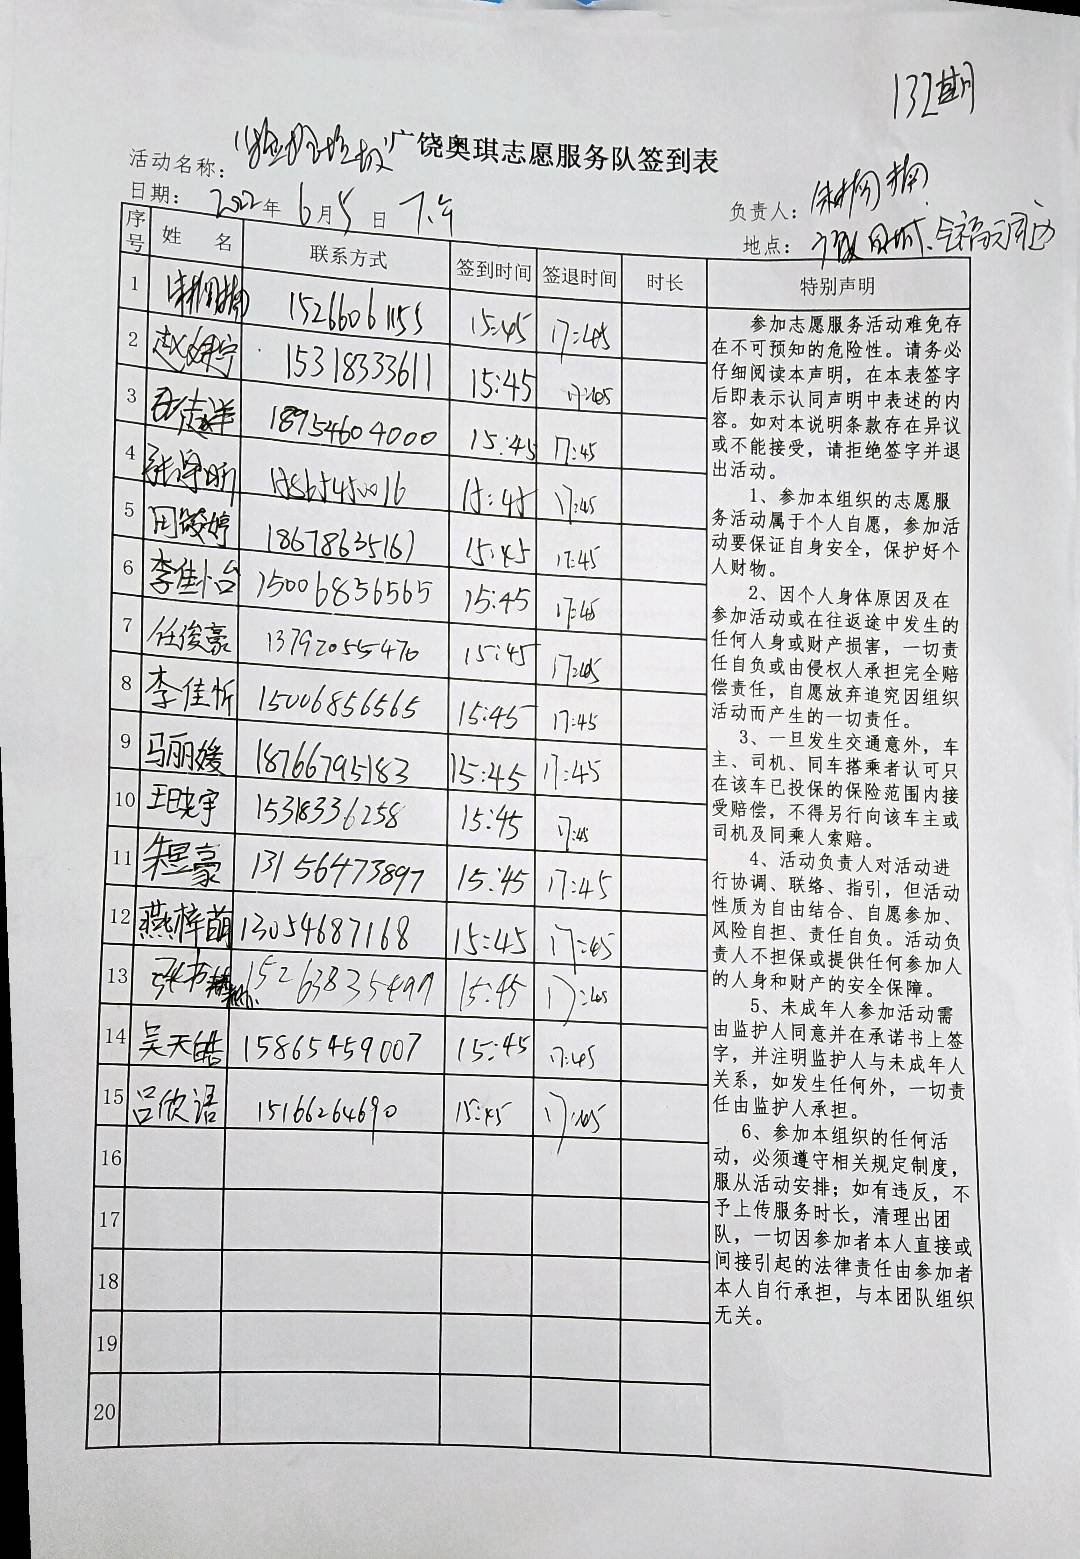 132期
广饶奥琪志愿服务队签到表
活动名称：“捡捡垃圾”
日期： 2022年 6月5日 下午
负责人：
地点：
序号 姓 名 联系方式 签到时间 签退时间 时长 特别声明
1 15266061155 15:45 17:45
2 15318333611 15:45 17:45
3 18954604000 15:45 17:45
4 15865450016 15:45 17:45
5 田筱婷 18678635167 15:45 17:45
6 李佳怡 15006856565 15:45 17:45
7 任俊豪 13792055470 15:45 17:45
8 李佳忻 15006856565 15:45 17:45
9 马丽媛 18766795183 15:45 17:45
10 王晓宇 15318336258 15:45 17:45
11 朱昱豪 13156473897 15:45 17:45
12 燕梓萌 13054687168 15:45 17:45
13 张书 15263835497 15:45 17:45
14 吴天皓 15865459007 15:45 17:45
15 吕欣语 15166264690 15:45 17:45
16
17
18
19
20
参加志愿服务活动难免存
在不可预知的危险性。请务必
仔细阅读本声明，在本表签字
后即表示认同声明中表述的内
容。如对本说明条款存在异议
或不能接受，请拒绝签字并退
出活动。
1、参加本组织的志愿服
务活动属于个人自愿，参加活
动要保证自身安全，保护好个
人财物。
2、因个人身体原因及在
参加活动或在往返途中发生的
任何人身或财产损害，一切责
任自负或由侵权人承担完全赔
偿责任，自愿放弃追究因组织
活动而产生的一切责任。
3、一旦发生交通意外，车
主、司机、同车搭乘者认可只
在该车已投保的保险范围内接
受赔偿，不得另行向该车主或
司机及同乘人索赔。
4、活动负责人对活动进
行协调、联络、指引，但活动
性质为自由结合、自愿参加、
风险自担、责任自负。活动负
责人不担保或提供任何参加人
的人身和财产的安全保障。
5、未成年人参加活动需
由监护人同意并在承诺书上签
字，并注明监护人与未成年人
关系，如发生任何外，一切责
任由监护人承担。
6、参加本组织的任何活
动，必须遵守相关规定制度，
服从活动安排；如有违反，不
予上传服务时长，清理出团
队，一切因参加者本人直接或
间接引起的法律责任由参加者
本人自行承担，与本团队组织
无关。